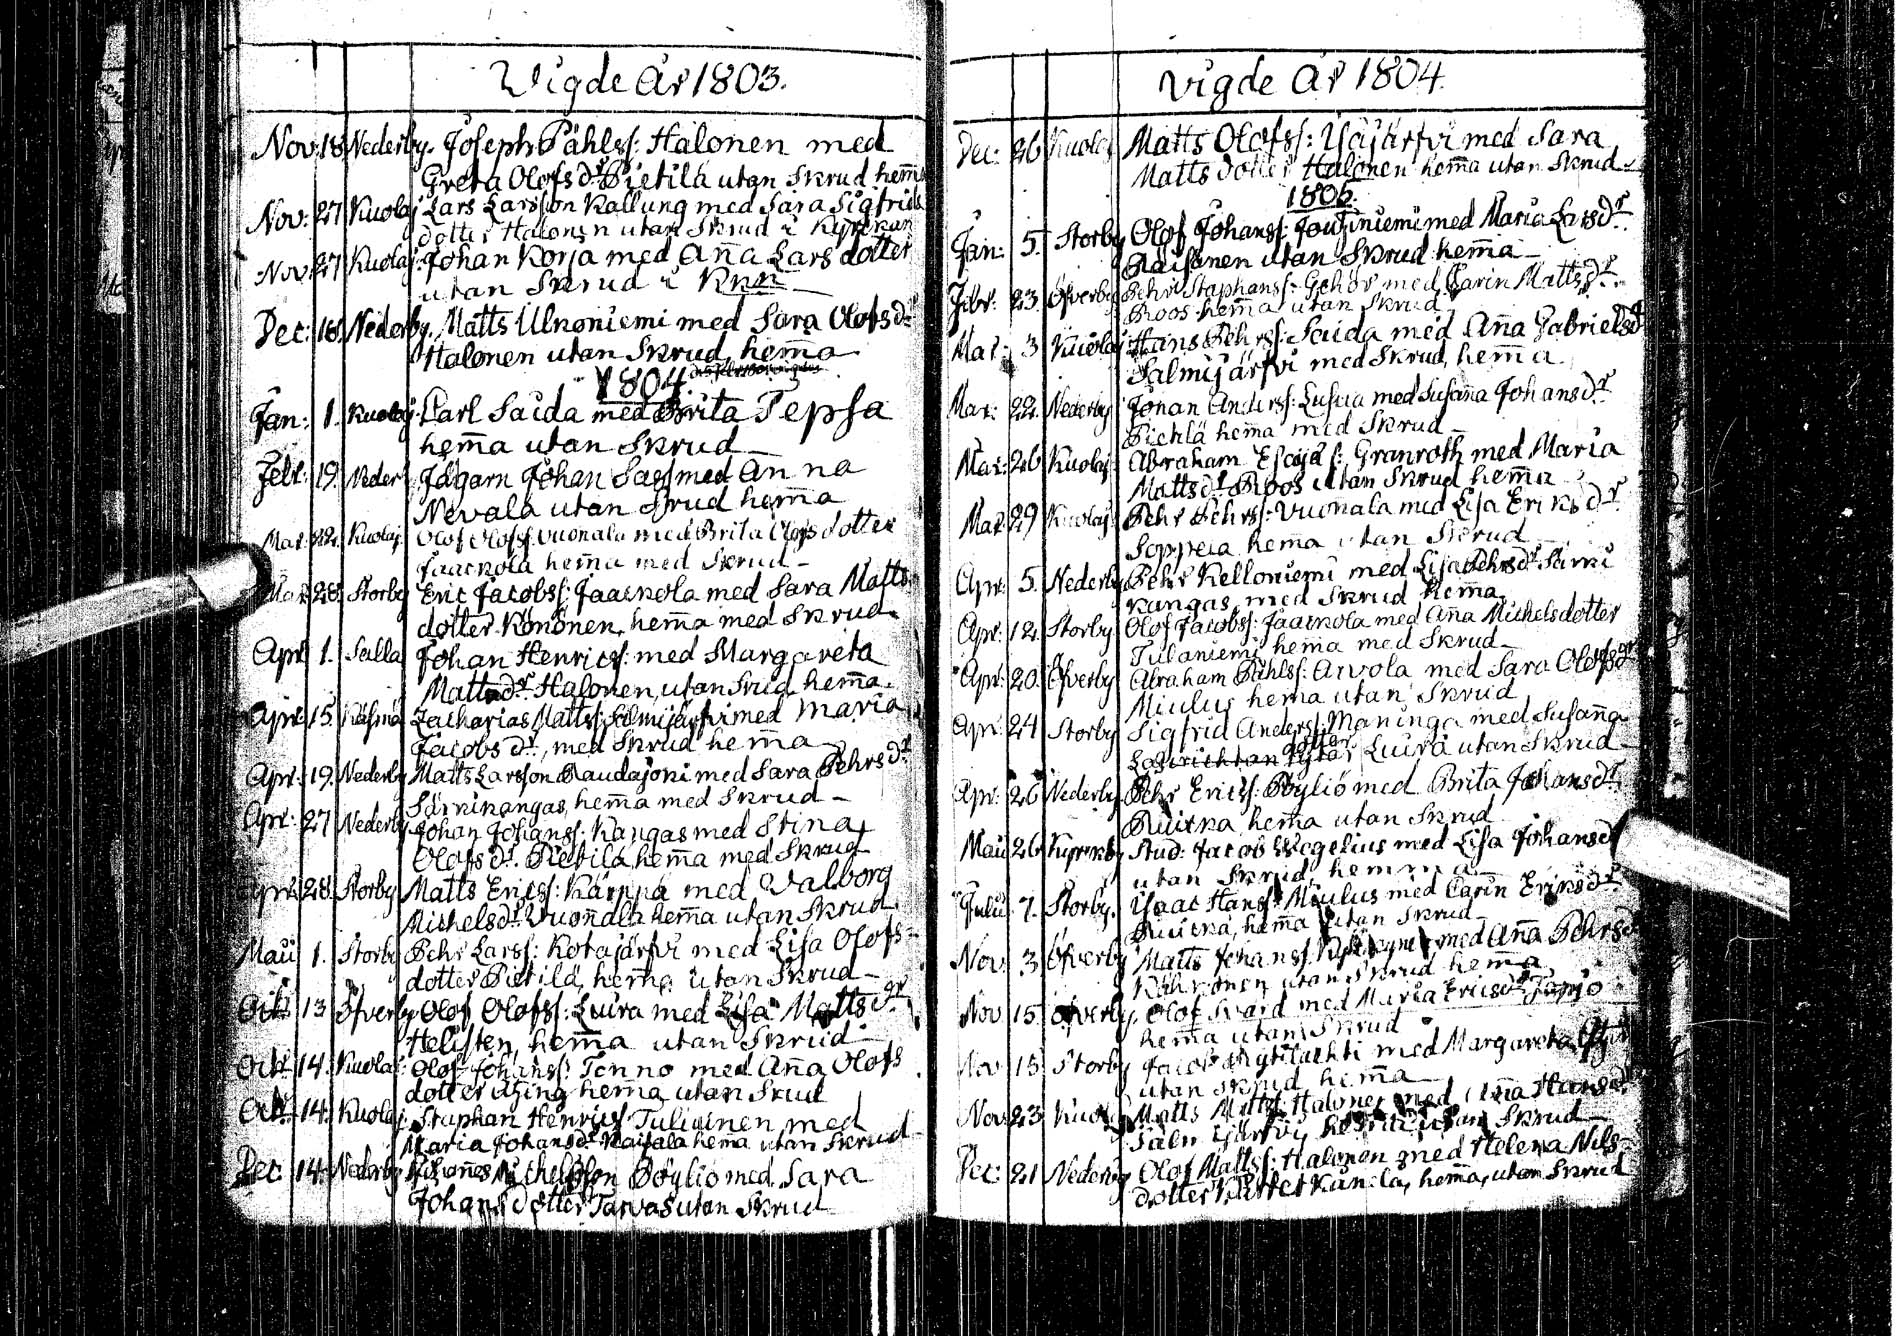 Vigde År 1803.
Nov: 18 Nederby. Joseph Påhlss: Halonen med
Greta Olofs dr Pietilä utan Skrud hem̄a
Nov: 27 Kuolaj: Lars Larsson Kallung med Sara Sigfrids
dotter Halonen utan Skrud i Kyrckan
Nov: 27 Kuolaj: Johan Korja med An̄a Lars dotter
utan Skrud i Krkn
Dec: 18. Nederby. Matts Ulkuniemi med Sara Olofs dr
Halonen utan Skrud, hem̄a
1804.
Jan: 1. Kuolaj: Carl Saida med Brita Tepsa
hem̄a utan Skrud
Febr: 19. Neder Jägarn Johan Sass med Anna
Nevala utan Skrud hem̄a
Mar: 22. Kuolaj. Olof Olofss: Vuonala med Brita Olofs dotter
Jaackola hem̄a med Skrud
Mar: 28. Storby Eric Jacobss: Jaackola med Sara Matts
dotter Könönen, hem̄a med Skrud
Apr: 1. Salla Johan Henricss: med Margareta
Matts dr Halonen, utan Skrud hem̄a
Apr: 15. Zacharias Mattss: Salmijärfvi med Maria
Jacobs dr, med Skrud hem̄a
Apr: 19. Nederby Matts Larsson Raudajoni med Sara Pehrs dr
Särkikangas, hem̄a med Skrud
Apr: 27 Nederby. Johan Johanss: Kangas med Stina
Olofs dr Pietilä, hem̄a med Skrud
Apr: 28. Storby Matts Ericss: Kärppä med Valborg
Michels dr Vuon̄ala hem̄a utan Skrud
Maii 1. Storby Pehr Larss: Kotajärfvi med Lisa Olofs
dotter Pietilä, hem̄a utan Skrud
Octr 13 Öfverby Olof Olofss: Luira med Lisa Matts dr
Helisten, hem̄a utan Skrud
Octr 14. Kuolaj: Olof Johanss: Tenno med An̄a Olofs
dotter hem̄a utan Skrud
Octr 14. Kuolaj: Staphan Henricss: Tuliainen med
Maria Johans dr hem̄a utan Skrud
Dec: 14. Nederby Johan̄es Michelsson Pöyliö med Sara
Johans dotter Tarvas utan Skrud
Vigde År 1804.
Dec: 26 Kuolaj Matts Olofss: Ysäjärfvi med Sara
Matts dotter Halonen hem̄a utan Skrud
1805.
Jan: 5. Storby Olof Johanss: Joutziniemi med Maria Lars dr
Räisänen utan Skrud hem̄a
Febr: 23. Öfverby Pehr Staphanss: Gehör med Carin Matts dr
Roos hem̄a utan Skrud
Mar: 3 Kuolaj Hans Pehrs: Saida med An̄a Gabriels dr
Salmijärfvi med Skrud, hem̄a
Mar: 22. Nederby Johan Anderss: Lusua med Susan̄a Johans dr
Pichlä hem̄a med Skrud
Mar: 26 Kuolaj: Abraham Esaiæ s: Granroth med Maria
Matts dr Roos utan Skrud hem̄a
Mar: 29 Kuolaj: Pehr Pehrs: Vuonala med Lisa Eriks dr
Soppela hem̄a utan Skrud
Apr: 5. Nederby Pehr Kelloniemi med Lisa Pehrs dr Särki
kangas, med Skrud hem̄a
Apr: 12. Storby Olof Jacobss: Jaackola med An̄a Michelsdotter
Tulaniemi hem̄a med Skrud
Apr: 20. Öfverby Abraham Påhlss: Arvola med Sara Olofs dr
Miulus hem̄a utan Skrud
Apr: 24 Storby Sigfrid Anderss: Maninga med Susan̄a
dotter Luira utan Skrud
Apr: 26 Nederby Pehr Ericss: Pöyliö med Brita Johans dr
Kuicka hem̄a utan Skrud
Maii 26 Kyrckby Stud: Jacob Wegelius med Lisa Johans dr
utan Skrud hemma
Julii 7. Storby. Ysaac Hanss: Miulus med Carin Eriks dr
Kuicka, hem̄a utan Skrud
Nov: 3 Öfverby Matts Johanss: med An̄a Pehrs dr
utan Skrud hem̄a
Nov: 15. Öfverby. Olof Svärd med Maria Erics dr Tapio
hem̄a utan Skrud
Nov: 15 Storby Jacob med Margareta
utan Skrud hem̄a
Nov: 23 Kuolaj Matts Mattss: Halonen med An̄a Hans dr
Salmijärfvi, utan Skrud
Dec: 21 Nederby Olof Mattss: Halonen med Helena Nils
dotter hem̄a, utan Skrud